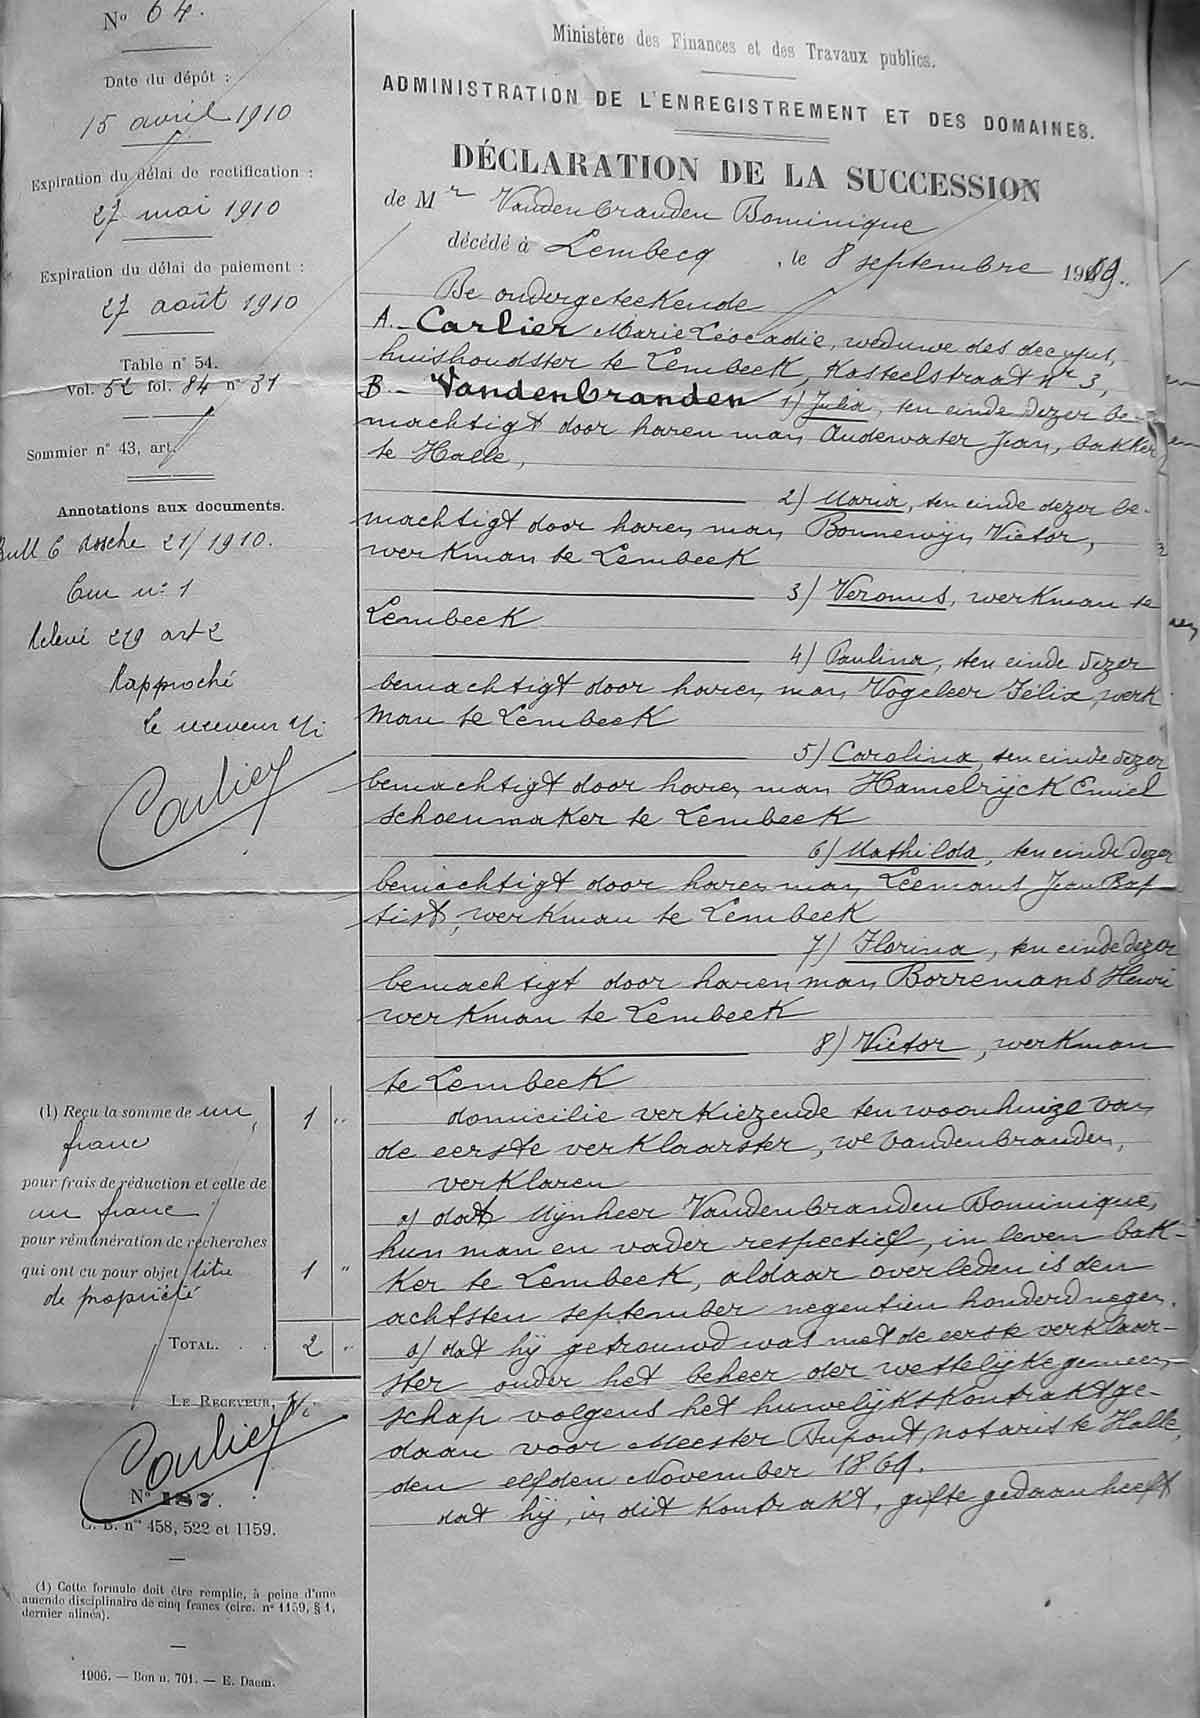 N° 64.
Date du dépôt :
15 avril 1910
Expiration du délai de rectification :
27 mai 1910
Expiration du délai de paiement :
27 août 1910
Table n° 54.
Vol. 52 fol. 84 n° 31
Sommier n° 43, art.
Annotations aux documents.
Bull C Assche 21/1910.
n° 1
Relevé 219 art 2
Rapproché
Le receveur
Carlier
(1) Reçu la somme de un 1 "
franc
pour frais de réduction et celle de
un franc
pour rémunération de recherches
qui ont eu pour objet titre 1 "
de propriété
TOTAL. . . 2 "
LE RECEVEUR,
Carlier
N° 187.
C. B. nos 458, 522 et 1159.
(1) Cette formule doit être remplie, à peine d'une
amende disciplinaire de cinq francs (circ. n° 1159, § 1,
dernier alinéa).
1906. — Bon n. 701. — E. Daem.
Ministère des Finances et des Travaux publics.
ADMINISTRATION DE L'ENREGISTREMENT ET DES DOMAINES.
DÉCLARATION DE LA SUCCESSION
de Mr Vandenbranden Dominique
décédé à Lembecq, le 8 septembre 1909.
De ondergeteekende
A. - Carlier Marie Léocadie, weduwe des decujus,
huishoudster te Lembeek, Kasteelstraat nr 3,
B - Vandenbranden 1) Julia, ten einde dezer be-
machtigt door haren man Oudewater Jean, bakker
te Halle,
2) Maria, ten einde dezer be-
machtigt door haren man Bonnewijn Victor,
werkman te Lembeek
3) Veronus, werkman te
Lembeek
4) Paulina, ten einde dezer
bemachtigt door haren man Vogeleer Félix, werk
man te Lembeek
5) Carolina ten einde dezer
bemachtigt door haren man Hamelrijck Emiel
schoenmaker te Lembeek
6) Mathilda, ten einde dezer
bemachtigt door haren man Leemans Jean Bap
tist, werkman te Lembeek
7) Florina, ten einde dezer
bemachtigt door haren man Borremans Henri
werkman te Lembeek
8) Victor, werkman
te Lembeek
domicilie verkiezende ten woonhuize van
de eerste verklaarster, we Vandenbranden,
verklaren
a) dat Mijnheer Vandenbranden Dominique,
hun man en vader respectief, in leven bak-
ker te Lembeek, aldaar overleden is den
achtsten september negentien honderd negen.
a) dat hij getrouwd was met de eerste verklaar-
ster onder het beheer der wettelijke gemeen-
schap volgens het huwelijkskontrakt ge-
daan voor Meester Dupont, notaris te Halle,
den elfden November 1869.
dat hij, in dit kontrakt, gifte gedaan heeft